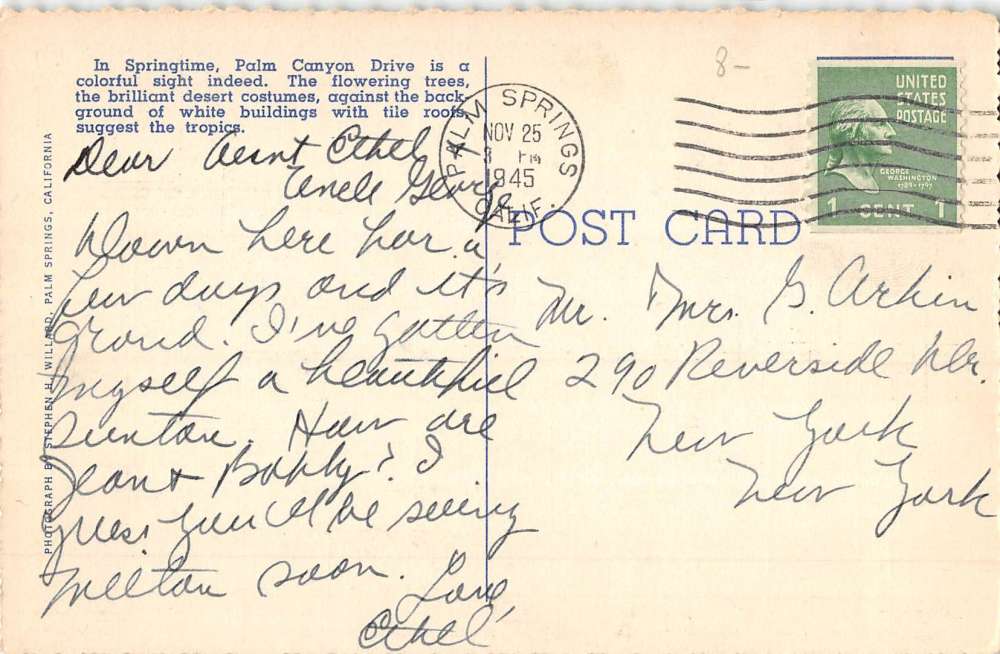 In Springtime, Palm Canyon Drive is a
colorful sight indeed. The flowering trees,
the brilliant desert costumes, against the back-
ground of white buildings with tile roofs,
suggest the tropics.
PHOTOGRAPH BY STEPHEN H. WILLARD, PALM SPRINGS, CALIFORNIA
Dear Aunt Ethel
Uncle George
Down here for a
few days and it's
Grand. I've gotten
myself a beautiful
suntan. How are
Jean + Bobby? I
guess you'll be seeing
Milton soon.
Love,
Ethel
8-
PALM SPRINGS
NOV 25
3 PM
1945
CALIF.
UNITED
STATES
POSTAGE
GEORGE
WASHINGTON
1789-1797
1 CENT 1
POST CARD
Mr. & Mrs. G. Arkin
290 Riverside Dr.
New York
New York